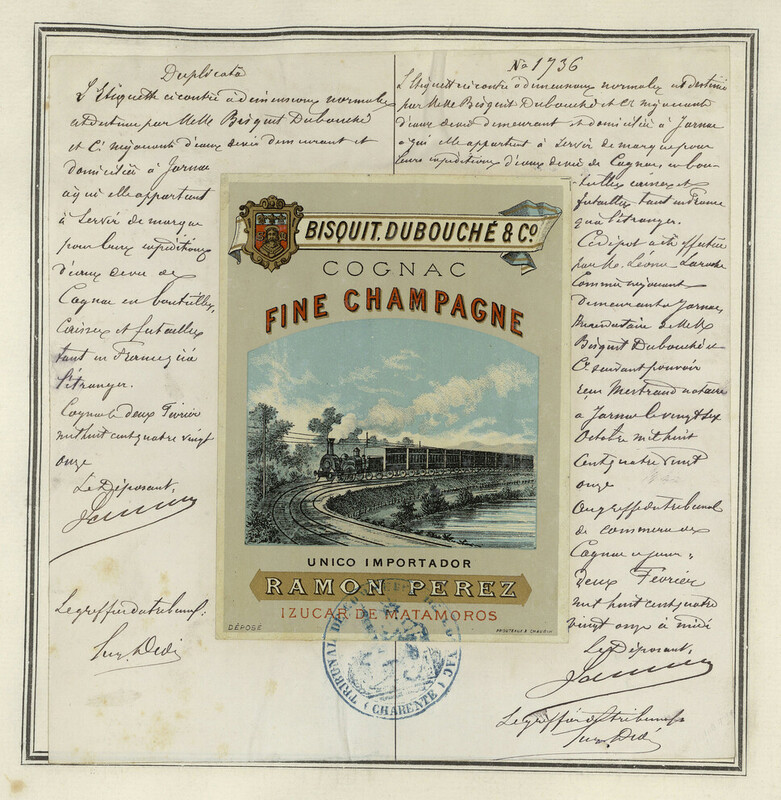 Duplicata
L'Etiquette ci contre à dimensions normales
est destinée par MM. Bisquit Dubouché
et Cie négociants d'eaux de vie demeurant et
domiciliés à Jarnac
à qui elle appartient
à servir de marque
pour leurs expéditions
d'eaux de vie de
Cognac en bouteilles,
Caisses et futailles
tant en France qu'à
l'étranger.
Cognac le deux Février
mil huit cent quatre vingt
onze
Le Déposant,
Le greffier du tribunal:
No 1736
L'Etiquette ci contre à dimensions normales est destinée
par MM. Bisquit Dubouché et Cie négociants
d'eaux de vie demeurant et domiciliés à Jarnac
à qui elle appartient à servir de marque pour
leurs expéditions d'eaux de vie de Cognac en bou-
teilles caisses et
futailles tant en France
qu'à l'étranger.
Ce dépôt a été effectué
par M. Léonce Laroche
Commis négociant
demeurant à Jarnac
Mandataire de MM.
Bisquit Dubouché et
Cie suivant pouvoir
reçu Mestraud notaire
à Jarnac le vingt six
Octobre mil huit
Cent quatre vingt
onze
Au greffe du tribunal
de commerce de
Cognac ce jour,
deux Février
mil huit cent quatre
vingt onze à midi
Le Déposant,
Le greffier du tribunal
BISQUIT, DUBOUCHÉ & Co.
COGNAC
FINE CHAMPAGNE
UNICO IMPORTADOR
RAMON PEREZ
IZUCAR DE MATAMOROS
DÉPOSÉ
TRIBUNAL DE COGNAC
(CHARENTE)